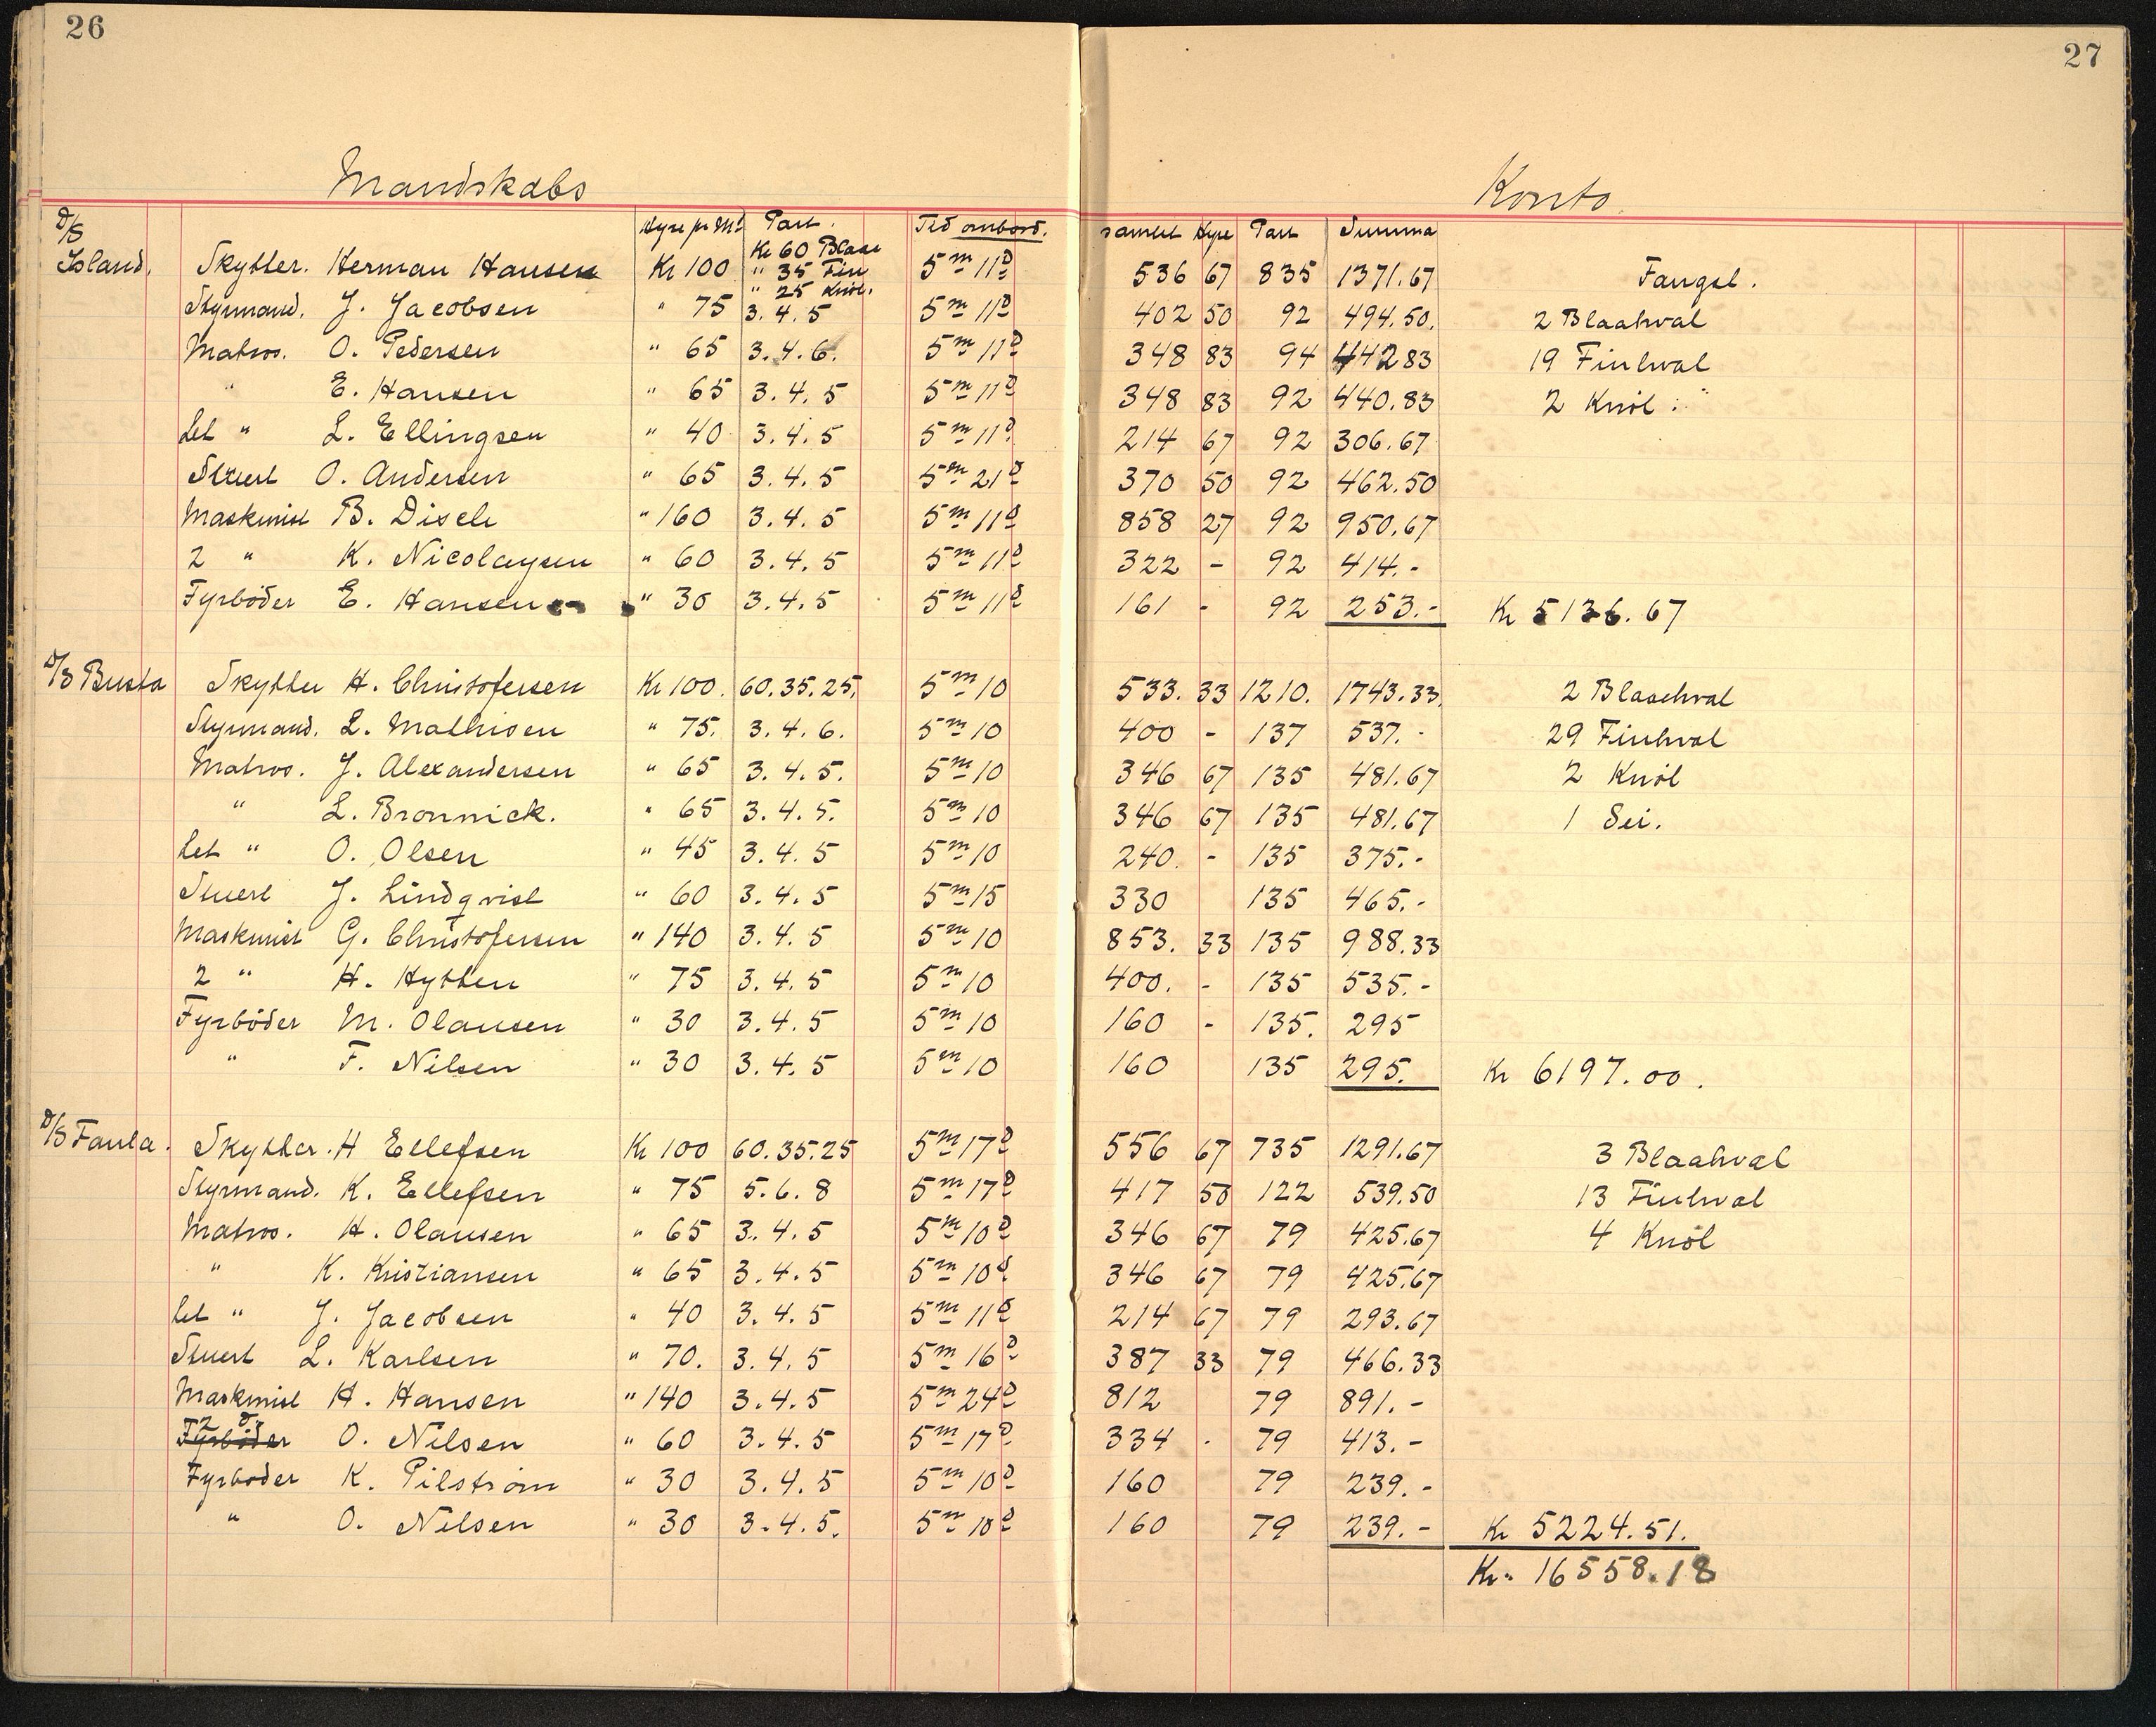 26
27
Mandskabs
Konto
Hyre pr Mt Part. Tid ombord. samlet Hyre Part Summa
D/S Island. Skytter. Herman Hansen Kr 100 Kr 60 Blaae " 35 Fin " 25 Knöl. 5 m 11 d 536 67 835 1371.67 Fangst.
Styrmand. J. Jacobsen " 75 3.4.5 5 m 11 d 402 50 92 494.50. 2 Blaahval
Matros. O. Pedersen " 65 3.4.6. 5 m 11 d 348 83 94 442 83 19 Finhval
" E. Hansen " 65 3.4.5 5 m 11 d 348 83 92 440.83 2 Knöl "
Let " L. Ellingsen " 40 3.4.5 5 m 11 d 214 67 92 306.67
Stuert O. Andersen " 65 3.4.5 5 m 21 d 370 50 92 462.50
Maskinist B. Disch " 160 3.4.5 5 m 11 d 858 27 92 950.67
2 " K. Nicolaysen " 60 3.4.5 5 m 11 d 322 - 92 414.-
Fyrböder E. Hansen " 30 3.4.5 5 m 11 d 161 - 92 253.- Kr 5136.67
D/S Busta Skytter H. Christofersen Kr 100. 60.35.25. 5 m 10 533. 33 1210. 1743.33. 2 Blaaehval
Styrmand. L. Mathisen " 75. 3.4.6. 5 m 10 400 - 137 537.- 29 Finhval
Matros. J. Alexandersen " 65 3.4.5. 5 m 10 346 67 135 481.67 2 Knöl
" L. Bronnick. " 65 3.4.5. 5 m 10 346 67 135 481.67 1 Sei.
Let " O. Olsen " 45 3.4.5 5 m 10 240. - 135 375.-
Stuert J. Lindqvist " 60 3.4.5 5 m 15 330 135 465.-
Maskinist G. Christofersen " 140 3.4.5 5 m 10 853. 33 135 988.33
2 " H. Hytten " 75 3.4.5 5 m 10 400. - 135 535.-
Fyrböder M. Olausen " 30 3.4.5 5 m 10 160 - 135. 295
" F. Nilsen " 30 3.4.5 5 m 10 160 135 295. Kr 6197.00.
D/S Faula. Skytter. H Ellefsen Kr 100 60.35.25 5 m 17 d 556 67 735 1291.67 3 Blaahval
Styrmand. K. Ellefsen " 75 5.6.8 5 m 17 d 417 50 122 539.50 13 Finhval
Matros. H. Olausen " 65 3.4.5 5 m 10 d 346 67 79 425.67 4 Knöl
" K. Kristiansen " 65 3.4.5 5 m 10 d 346 67 79 425.67
Let " J. Jacobsen " 40 3.4.5 5 m 11 d 214 67 79 293.67
Stuert L. Karlsen " 70. 3.4.5 5 m 16 d 387 33 79 466.33
Maskinist H. Hansen " 140 3.4.5 5 m 24 d 812 79 891.-
Fyrböder 2 d. O. Nilsen " 60 3.4.5 5 m 17 d 334 . 79 413.-
Fyrböder K. Pilström " 30 3.4.5 5 m 10 d 160 79 239.-
" O. Nilsen " 30 3.4.5. 5 m 10 d 160 79 239.- Kr 5224.51.
Kr. 16558.18